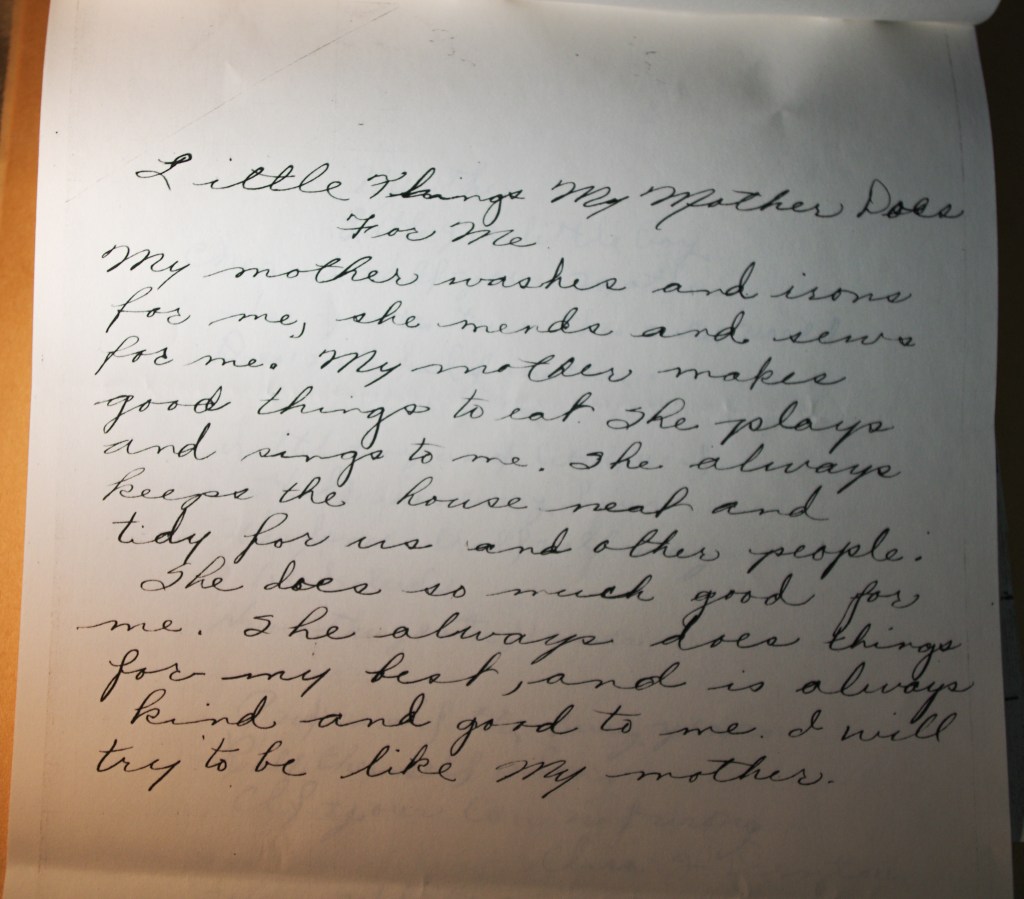 Little Things My Mother Does
For Me
My mother washes and irons
for me, she mends and sews
for me. My mother makes
good things to eat. She plays
and sings to me. She always
keeps the house neat and
tidy for us and other people.
She does so much good for
me. She always does things
for my best, and is always
kind and good to me. I will
try to be like My mother.